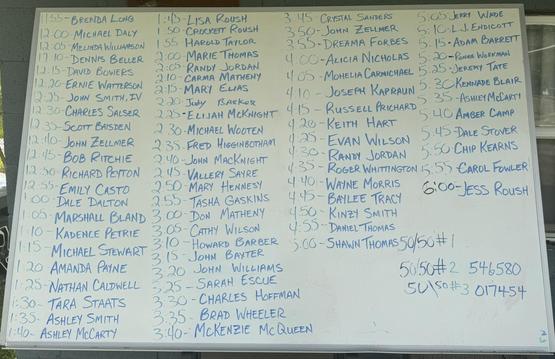 11:55- Brenda Long
12:00 Michael Daly
12:05- Melinda Williamson
12:10- Dennis Beller
12:15- David Bowers
12:20 Ernie Watterson
12:25- John Smith, IV
12:30 Charles Salser
12:35 Scott
12:40- John Zellmer
12:45- Bob Ritchie
12:50- Richard Peyton
12:55- Emily Casto
1:00- Dale Dalton
1:05- Marshall Bland
1:10- Kadence Petrie
1:15- Michael Stewart
1:20 Amanda Payne
1:25- Nathan Caldwell
1:30- Tara Staats
1:35- Ashley Smith
1:40- Ashley McCarty
1:45- Lisa Roush
1:50- Crockett Roush
1:55 Harold Taylor
2:00 Marie Thomas
2:05 Randy Jordan
2:10- Carma Matheny
2:15- Mary Elias
2:20 Judy Barker
2:25- Elijah McKnight
2:30 Michael Wooten
2:35 Fred Higginbotham
2:40- John MacKnight
2:45- Vallery Sayre
2:50 Mary Hennesy
2:55- Tasha Gaskins
3:00 Don Matheny
3:05- Cathy Wilson
3:10- Howard Barber
3:15- John Baxter
3:20 John Williams
3:25- Sarah Escue
3:30- Charles Hoffman
3:35- Brad Wheeler
3:40- McKenzie McQueen
3:45 Crystal Sanders
3:50- John Zellmer
3:55- Dreama Forbes
4:00- Alicia Nicholas
4:05- Mohelia Carmichael
4:10- Joseph Kapraun
4:15- Russell Prichard
4:20- Keith Hart
4:25- Evan Wilson
4:30- Randy Jordan
4:35- Roger Whittington
4:40- Wayne Morris
4:45- Baylee Tracy
4:50- Kinzy Smith
4:55- Daniel Thomas
5:00- Shawn Thomas
5:05- Jerry Wade
5:10- L.J. Endicott
5:15- Adam Barrett
5:20- Workman
5:25- Jeremy Tate
5:30 Kennade Blair
5:35- Ashley McCarty
5:40 Amber Camp
5:45 Dale Stover
5:50 Chip Kearns
5:55- Carol Fowler
6:00- Jess Roush
50/50 #1
50/50 #2 546580
50/50 #3 017454